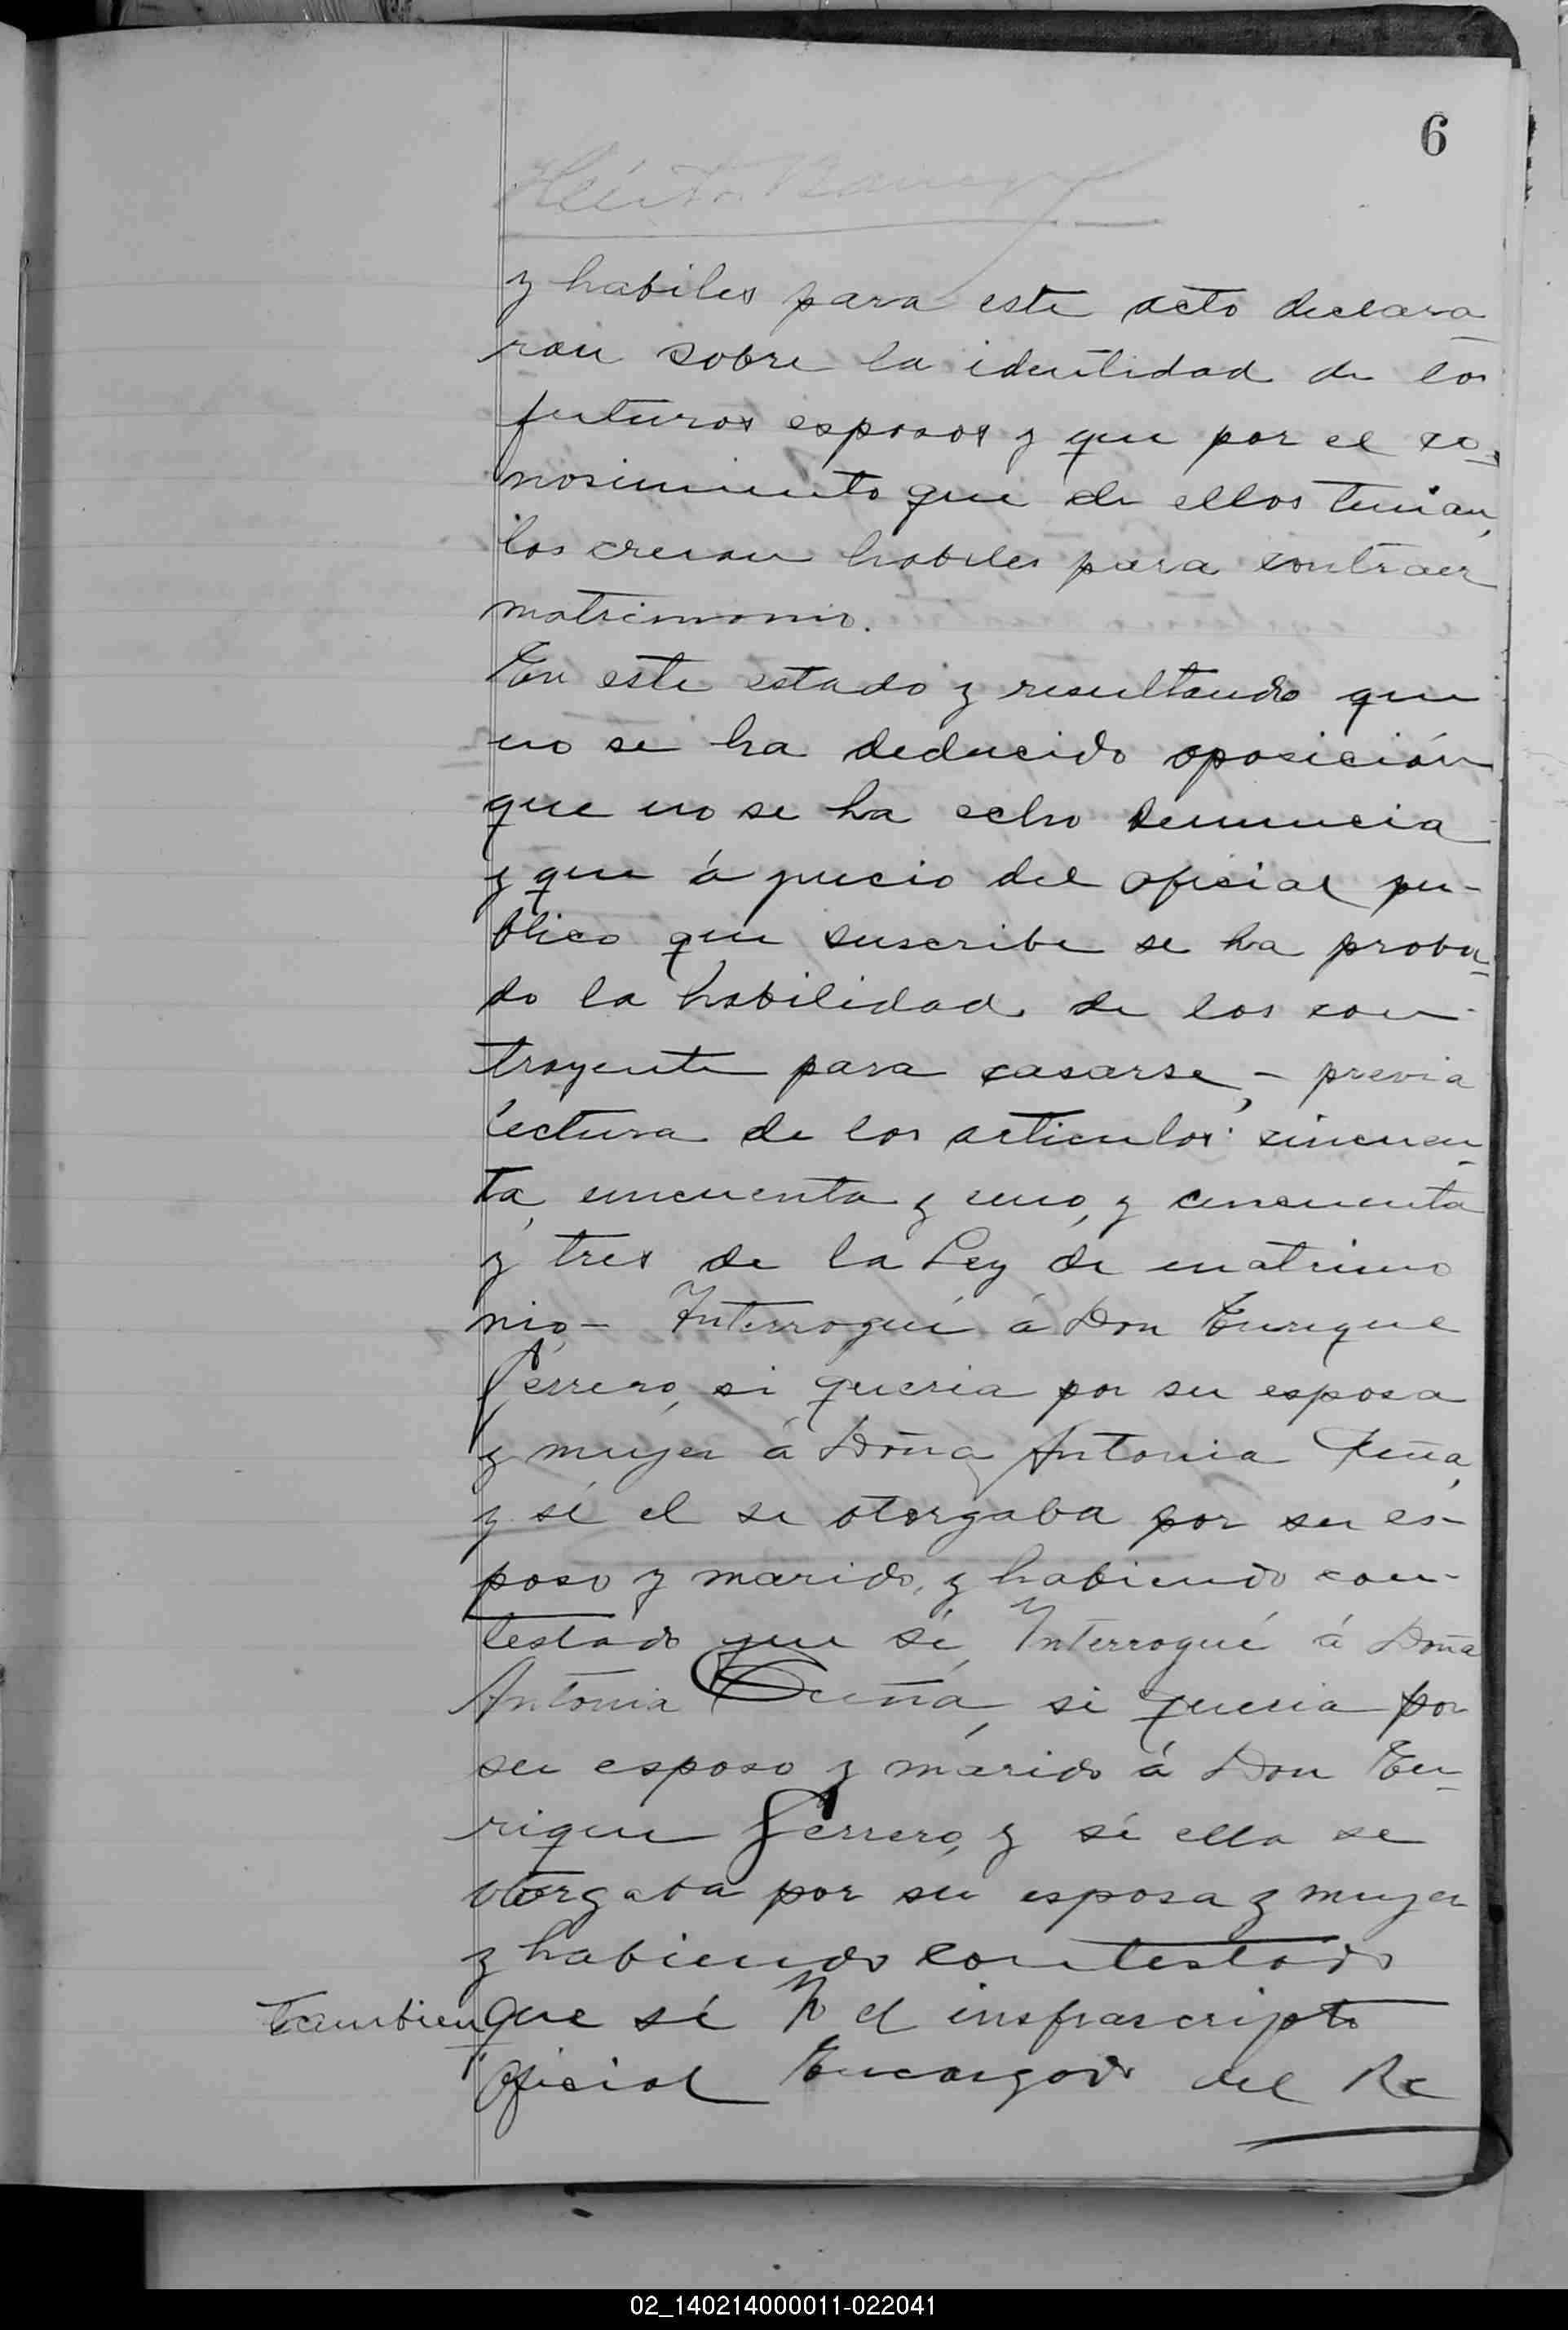 6
Héctor
y habiles para este acto declara
ron sobre la identidad de los
futuros esposos y que por el co-
nosimiento que de ellos tenian,
los creian habiles para contraer
matrimonio.
En este estado y resultando que
no se ha deducido oposición
que no se ha echo denuncia
y que á juicio del oficial pu-
blico que suscribe se ha proba-
do la habilidad de los con-
trayente para casarse, - previa
lectura de los articulos cincuen-
ta, cincuenta y uno, y cincuenta
y tres de la Ley de matrimo
nio - Interrogué á Don Enrique
Ferrero, si queria por su esposa
y mujer á Doña Antonia Peña,
y si el se otorgaba por su es-
poso y marido, y habiendo con-
testado que sí, Interrogué á Doña
Antonia Peña, si queria por
su esposo y marido á Don En-
rique Ferrero, y si ella se
otorgaba por su esposa y mujer
y habiendo contestado
tambien que sí Yo el insfrascripto
Oficial Encargado del Re
02_140214000011-022041